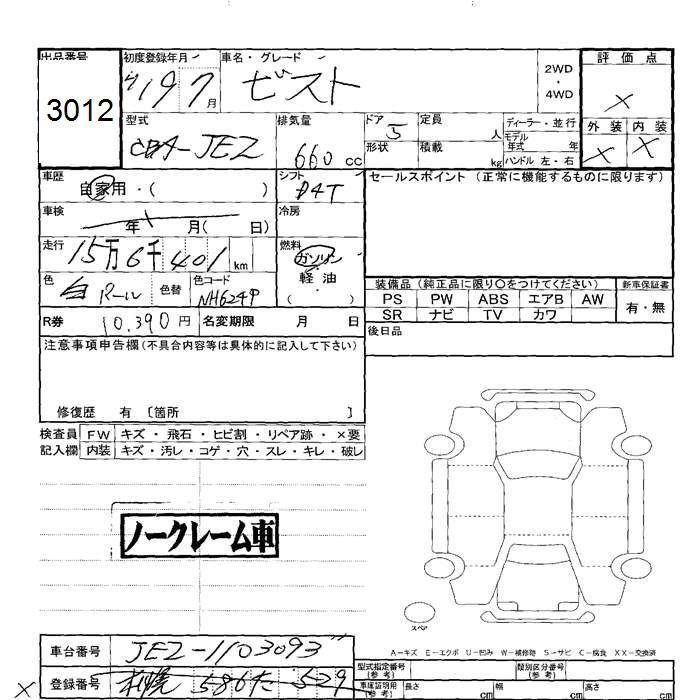 出品番号 初度登録年月 車名・グレード 評価点
3012 H19 7月 ゼスト 2WD・4WD ×
型式 排気量 ドア 定員 人 ディーラー・並行 外装 内装
CBA-JE2 660cc 5 モデル年式 年 × ×
形状 積載 kg ハンドル 左・右
車歴 自家用・( ) シフト D4T セールスポイント (正常に機能するものに限ります)
車検 年 月( 日) 冷房
走行 15万6千401km 燃料 ガソリン・軽油 ( )
色 白パール 色替 色コード NH624P 装備品 (純正品に限り○をつけてください) 新車保証書
PS PW ABS エアB AW 有・無
SR ナビ TV カワ
R券 10,390円 名変期限 月 日 後日品
注意事項申告欄(不具合内容等は具体的に記入して下さい)
修復歴 有 〔箇所 〕
検査員 FW キズ・飛石・ヒビ割・リペア跡・×要
記入欄 内装 キズ・汚レ・コゲ・穴・スレ・キレ・破レ
ノークレーム車
スペア
A-キズ E-エクボ U-凹み W-補修跡 S-サビ C-腐食 XX-交換済
車台番号 JE2-1103093
型式指定番号(参考) 類別区分番号(参考)
× 登録番号 札幌 586 529
車庫証明用(参考) 長さ cm 幅 cm 高さ cm